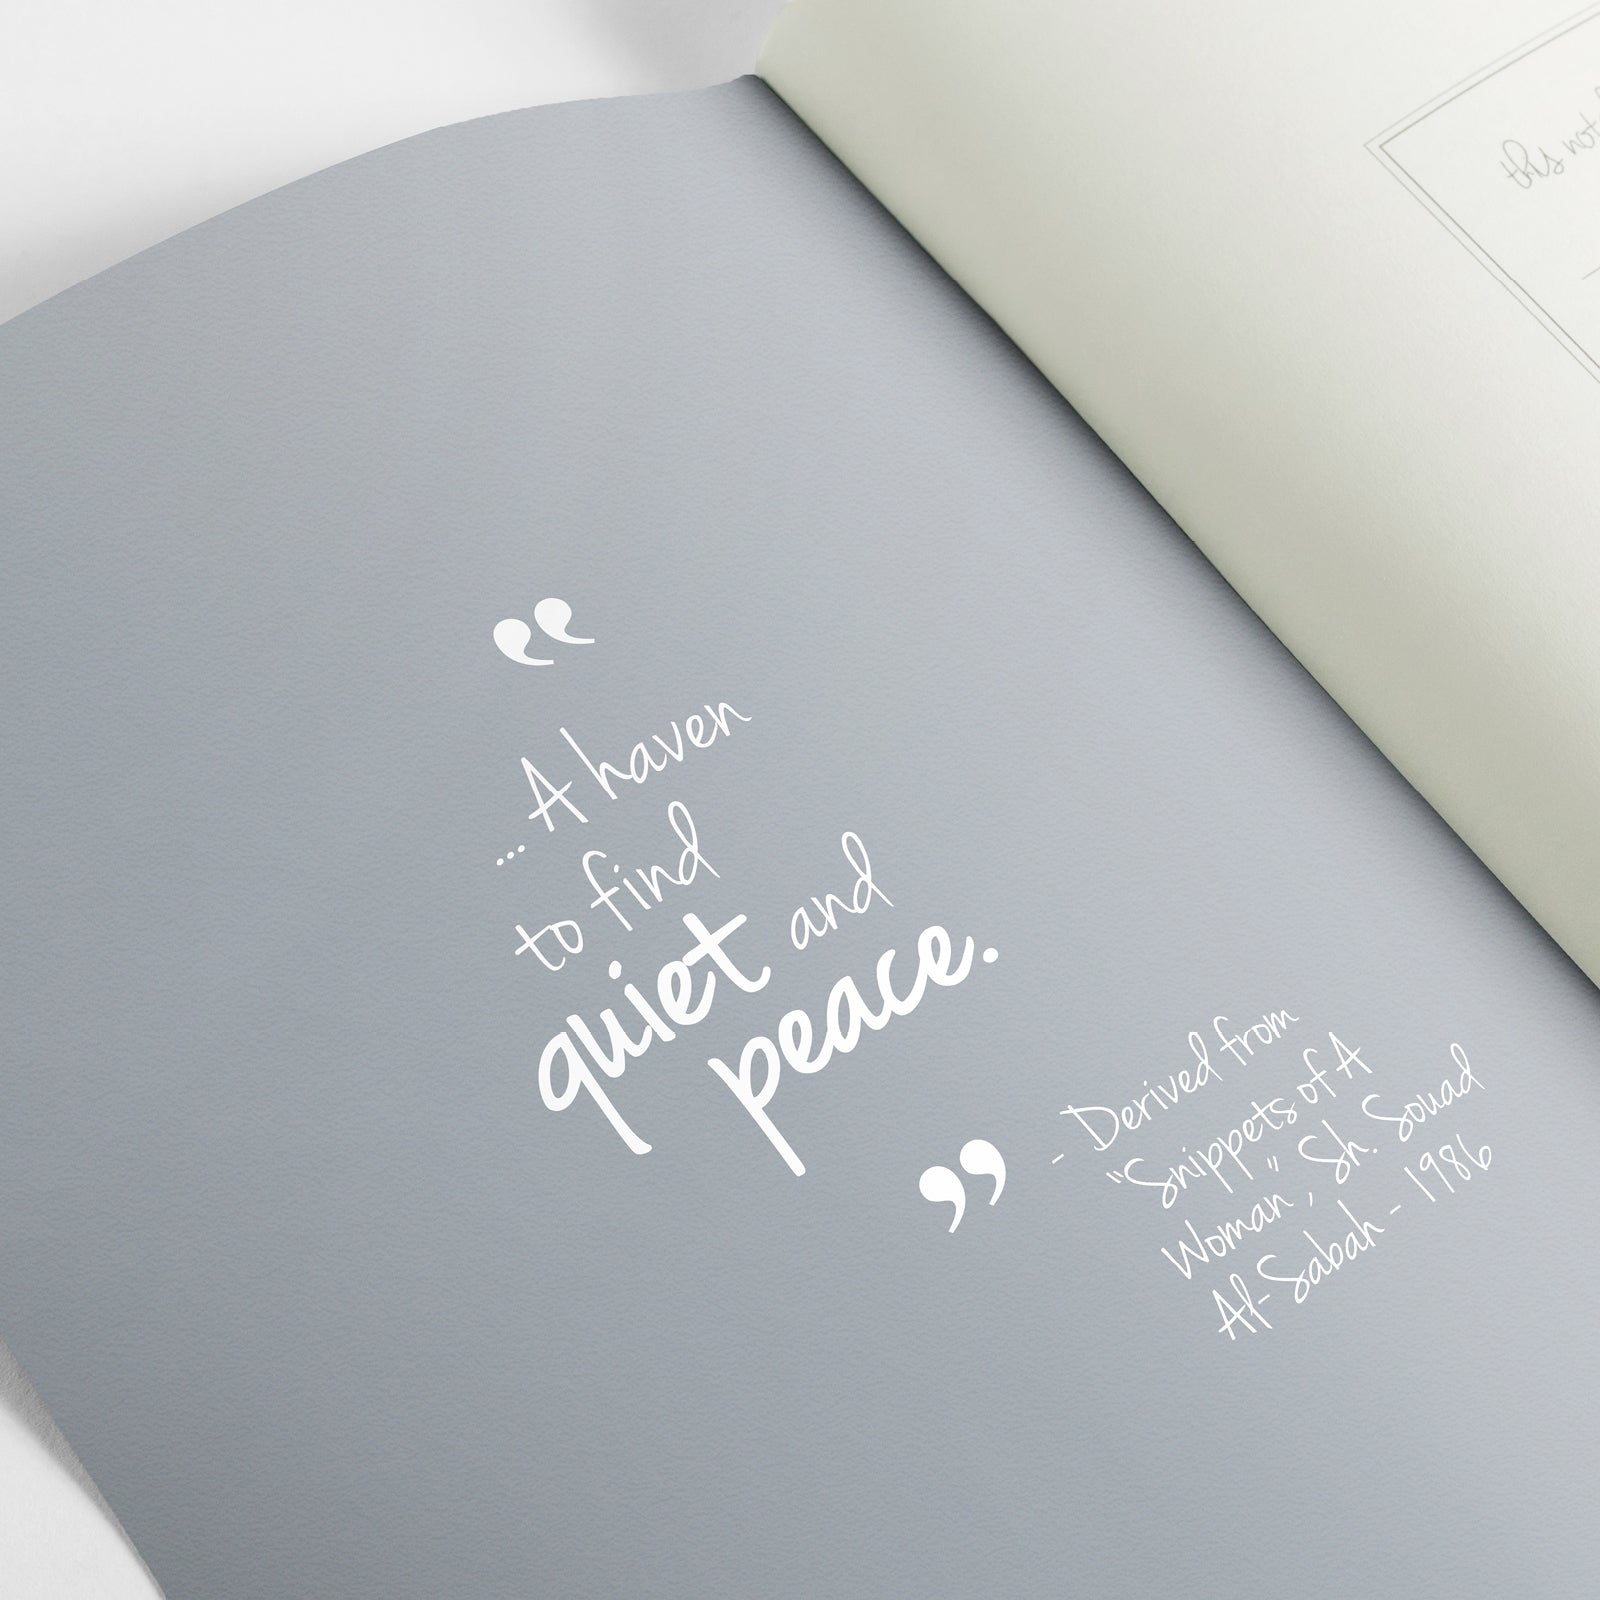 “
... A haven
to find
quiet and
peace.
”
- Derived from
“Snippets of A
Woman”, Sh. Souad
Al-Sabah - 1986
this not